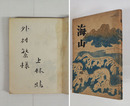 外村繁様
上林暁
海山